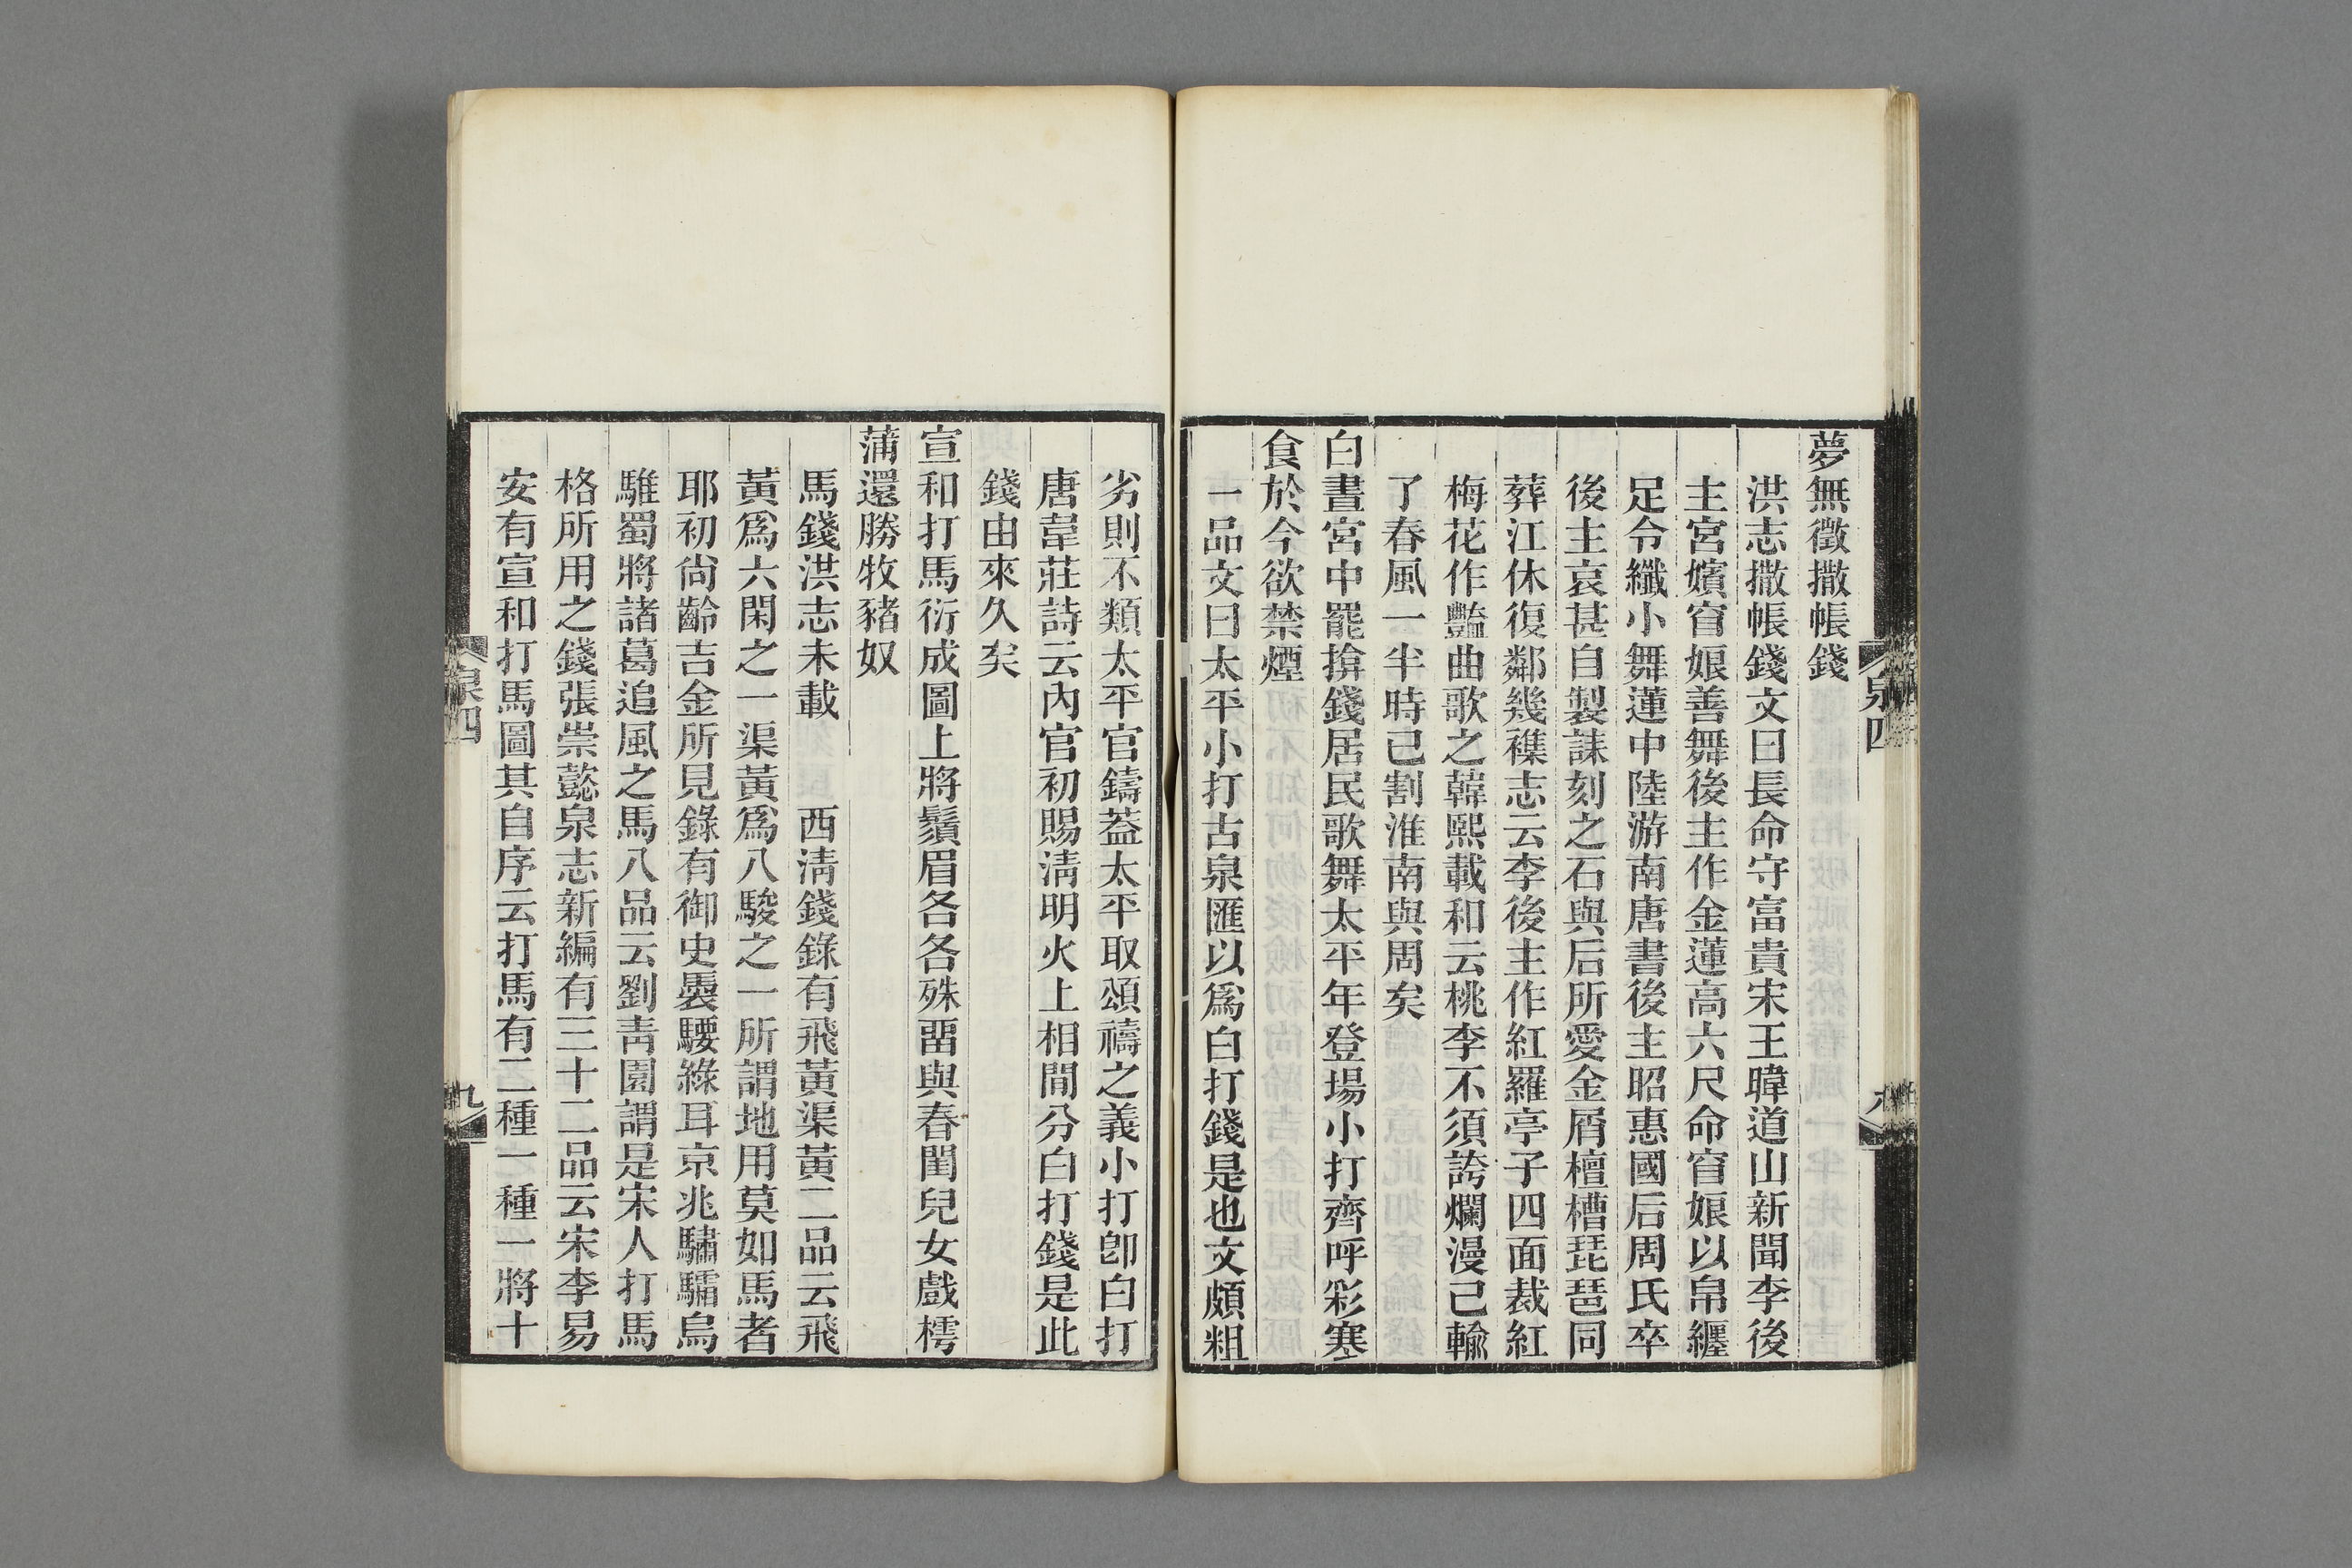 夢無徵撒帳錢
洪志撒帳錢文曰長命守富貴宋王暐道山新聞李後
主宮嬪窅娘善舞後主作金蓮高六尺命窅娘以帛纏
足令纖小舞蓮中陸游南唐書後主昭惠國后周氏卒
後主哀甚自製誄刻之石與后所愛金屑檀槽琵琶同
葬江休復鄰幾襍志云李後主作紅羅亭子四面裁紅
梅花作豔曲歌之韓熙載和云桃李不須誇爛漫已輸
了春風一半時已割淮南與周矣
白晝宮中罷揜錢居民歌舞太平年登場小打齊呼彩寒
食於今欲禁煙
一品文曰太平小打古泉匯以爲白打錢是也文頗粗
泉四
劣則不類太平官鑄葢太平取頌禱之義小打卽白打
唐韋莊詩云內官初賜淸明火上相閒分白打錢是此
錢由來久矣
宣和打馬衍成圖上將鬚眉各各殊畱與春閨兒女戲樗
蒲還勝牧豬奴
馬錢洪志未載 西淸錢錄有飛黃渠黃二品云飛
黃爲六閑之一渠黃爲八駿之一所謂地用莫如馬者
耶初尙齡吉金所見錄有御史褭騕綠耳京兆驌驦烏
騅蜀將諸葛追風之馬八品云劉靑園謂是宋人打馬
格所用之錢張崇懿泉志新編有三十二品云宋李易
安有宣和打馬圖其自序云打馬有二種一種一將十
泉四
九